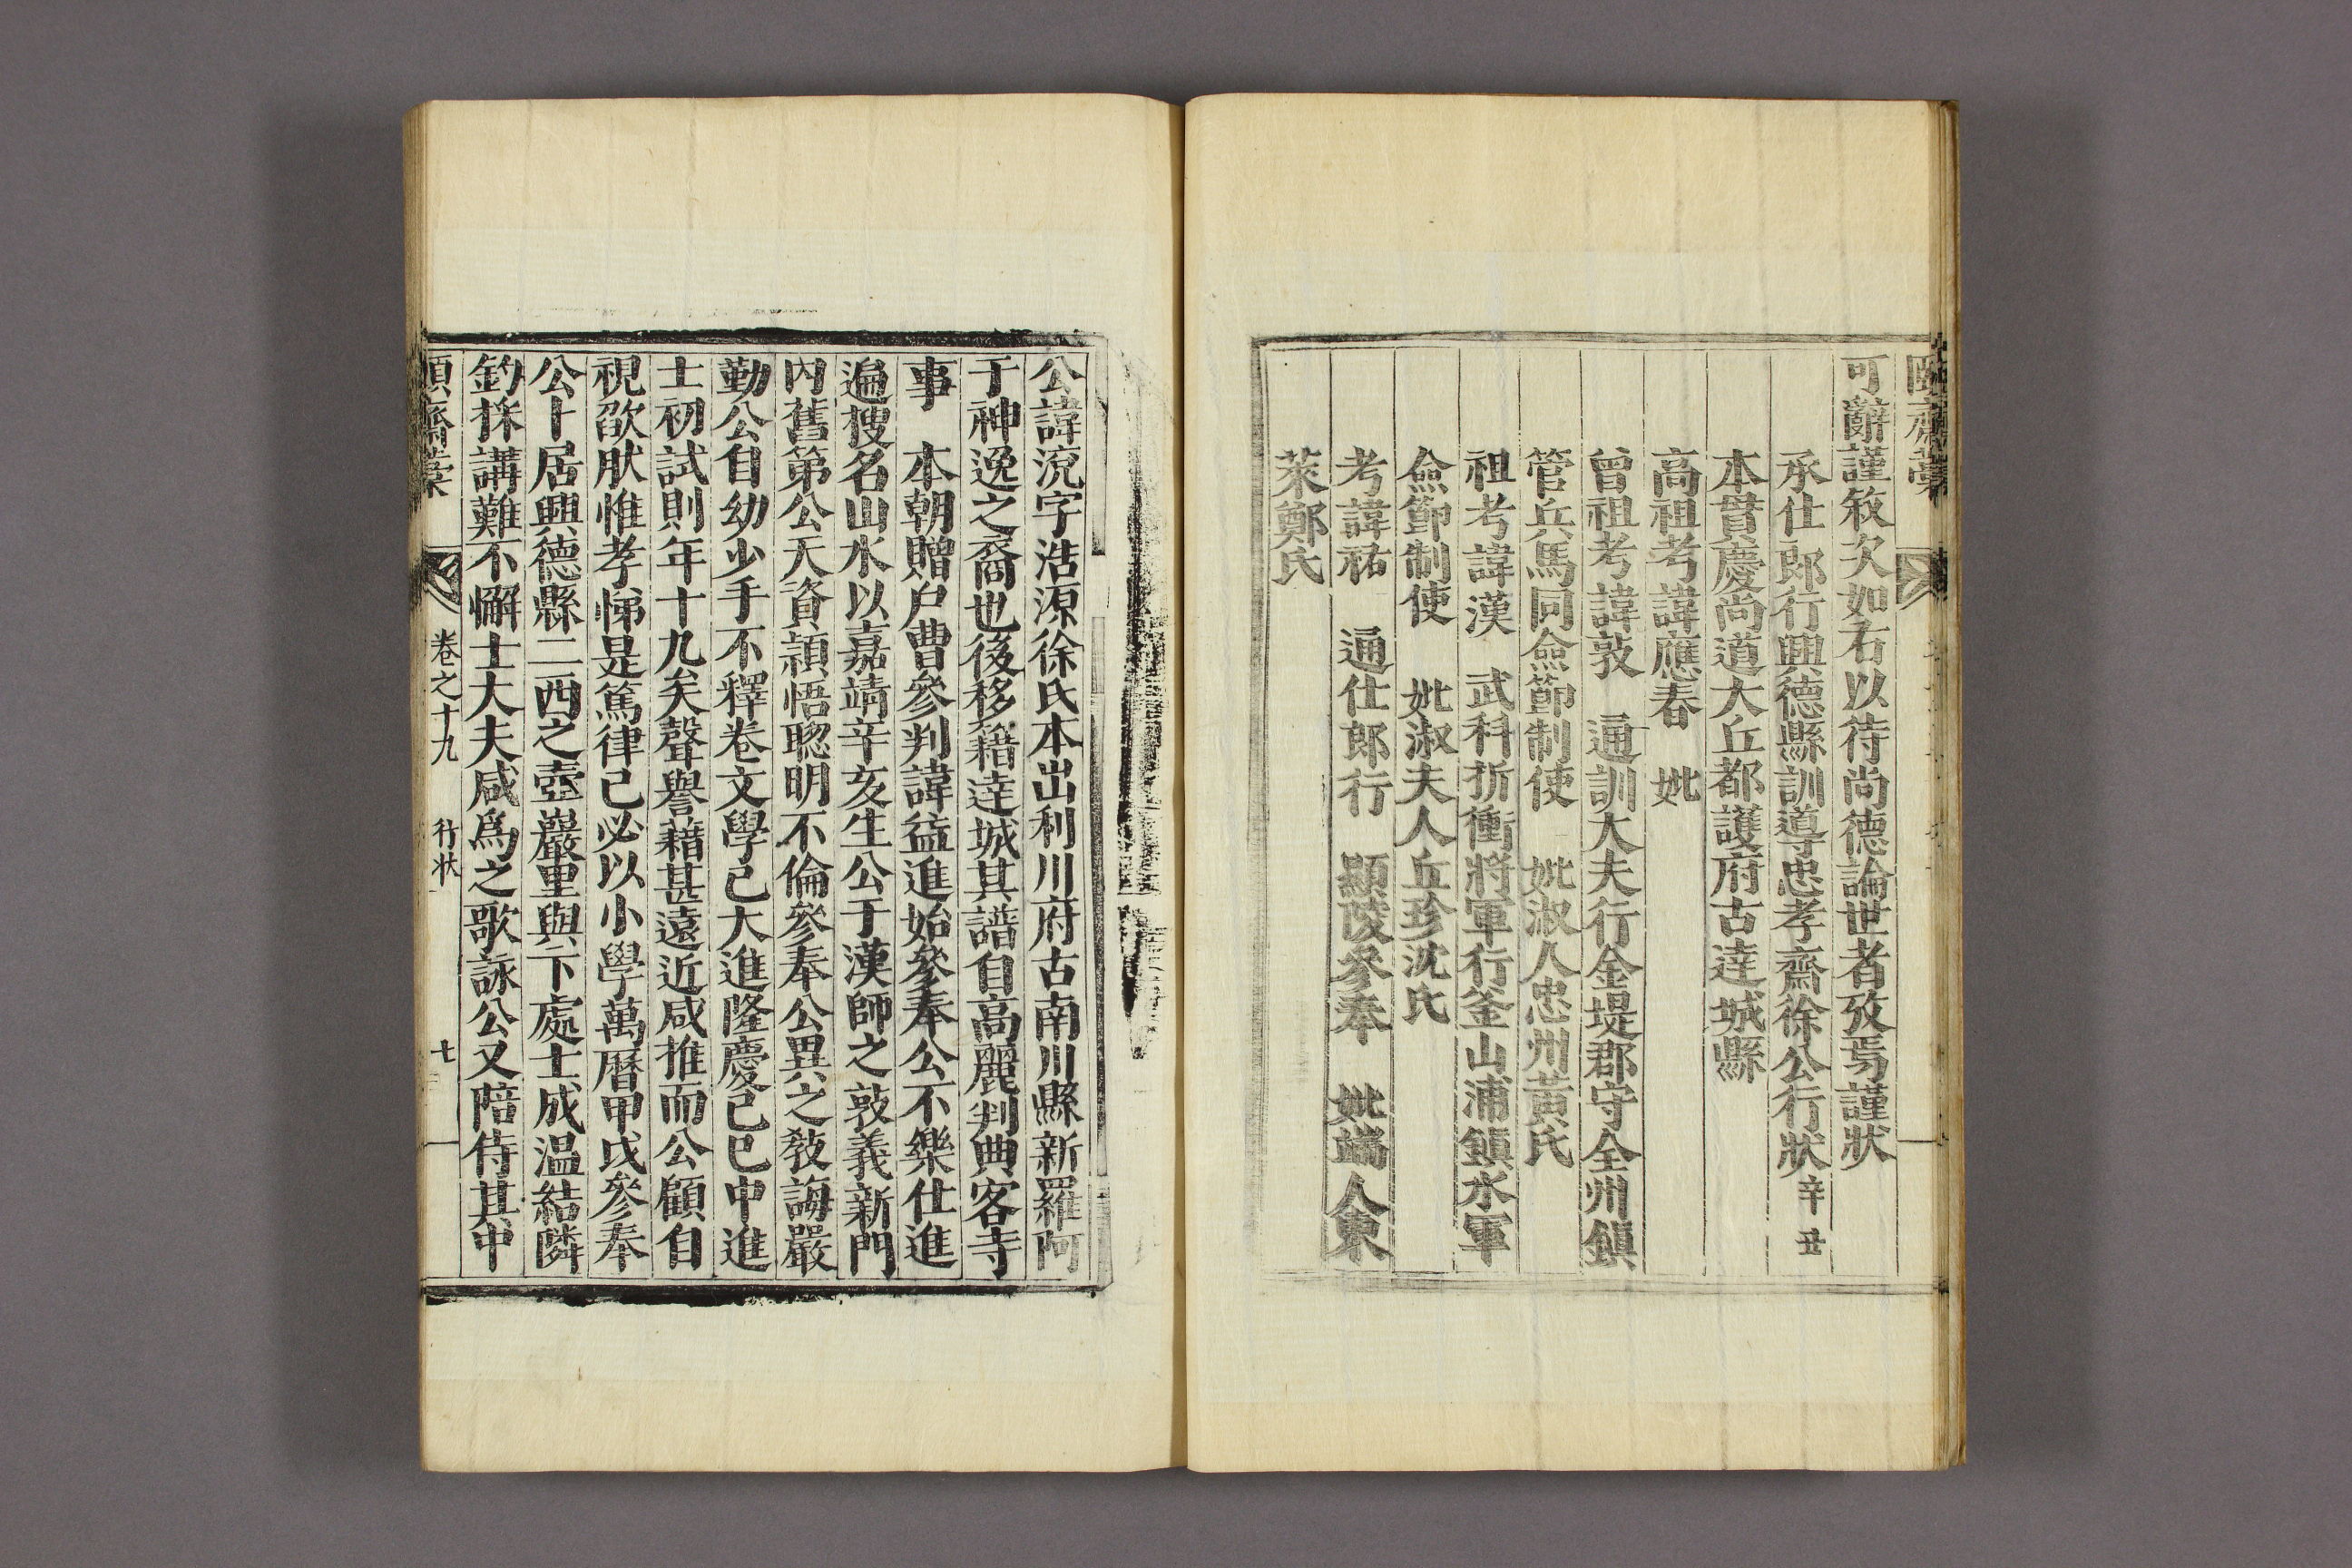 可辭謹敘次如右以待尚德論世者攷焉謹狀
承仕郎行興德縣訓導忠孝齋徐公行狀辛丑
本貫慶尚道大丘都護府古達城縣
高祖考諱應春　妣
曾祖考諱敦　通訓大夫行金堤郡守全州鎭
管兵馬同僉節制使　妣淑人忠州黃氏
祖考諱漢　武科折衝將軍行釜山浦鎭水軍
僉節制使　妣淑夫人丘珍沈氏
考諱祐　通仕郎行　顯陵參奉　妣端人東
萊鄭氏
公諱浣字浩源徐氏本出利川府古南川縣新羅阿
干神逸之裔也後移籍達城其譜自高麗判典客寺
事　本朝贈戶曹參判諱益進始參奉公不樂仕進
遍搜名山水以嘉靖辛亥生公于漢師之敦義新門
內舊第公天資穎悟聦明不倫參奉公異之敎誨嚴
勤公自幼少手不釋卷文學已大進隆慶己巳中進
士初試則年十九矣聲譽藉甚遠近咸推而公顧自
視欿肰惟孝悌是篤律己必以小學萬曆甲戌參奉
公卜居興德縣二西之壺巖里與下處士成溫結隣
釣採講難不懈士大夫咸爲之歌詠公又陪侍其中
頤齋藁　卷之十九　行狀　七